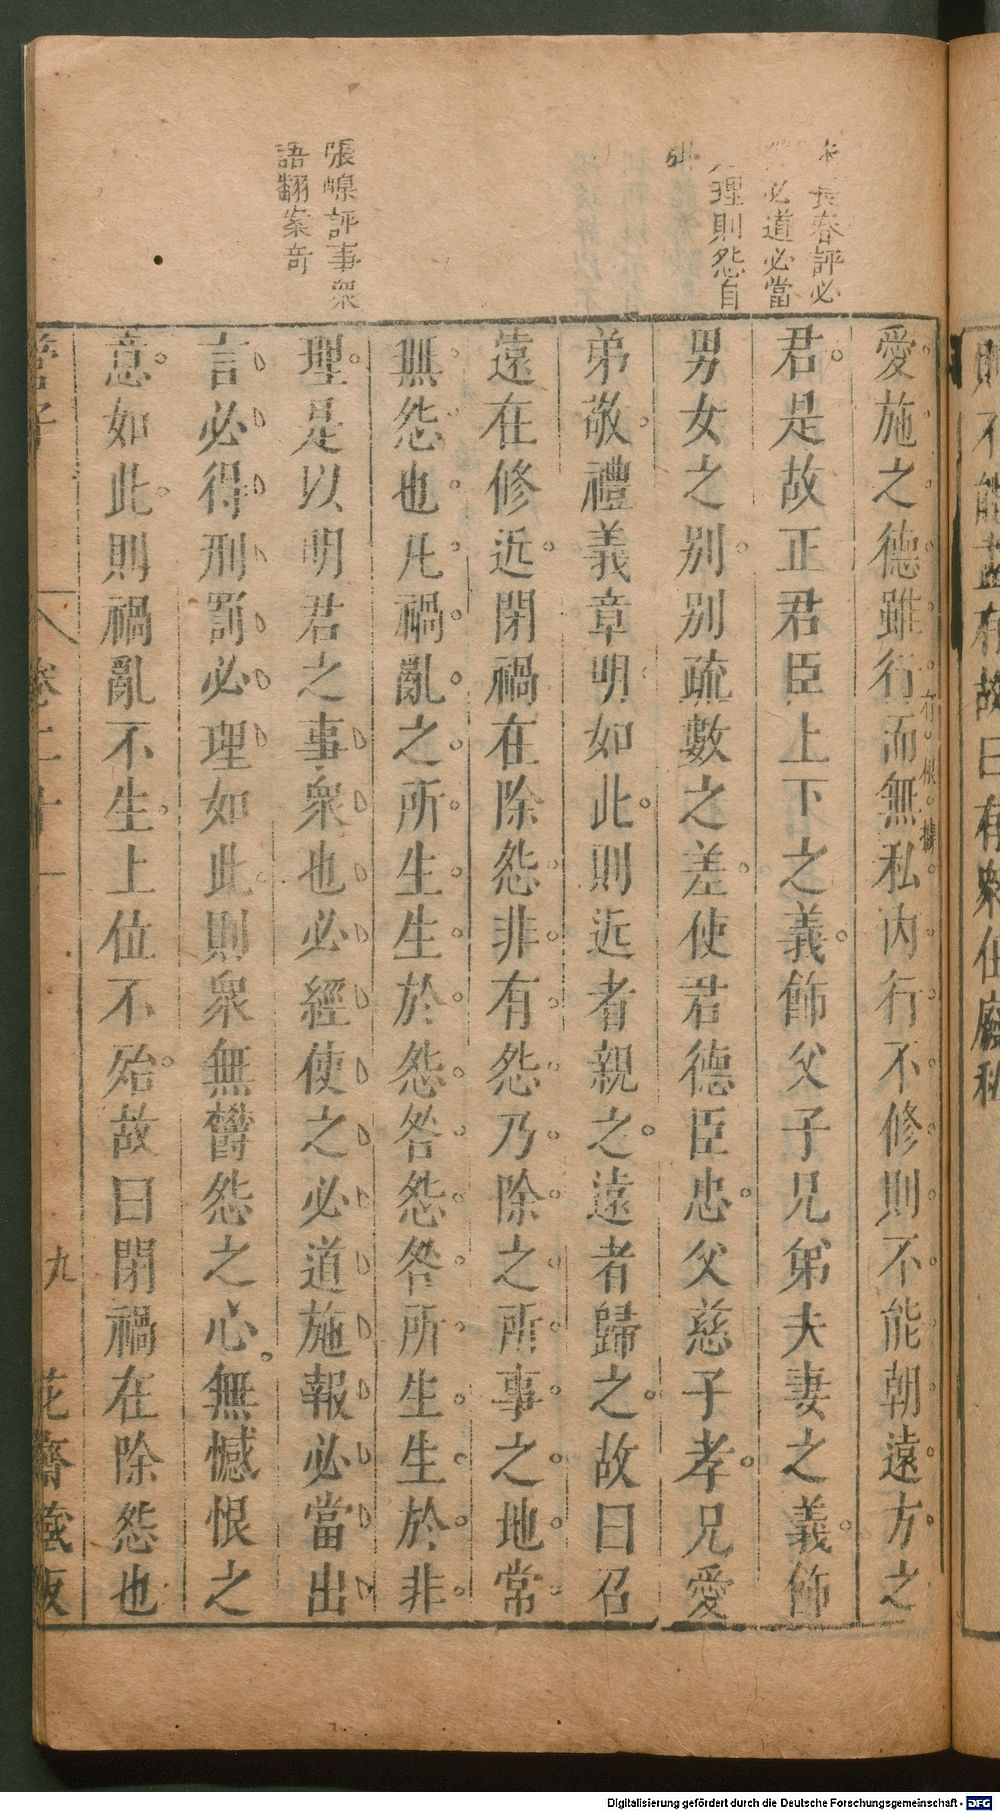 則不能盡有故曰有衆在廢私
長春評必
必道必當
理則怨自
張嵲評事衆
語翻案奇
愛施之德雖行而無私内行不修則不能朝遠方之
有根據
君是故正君臣上下之義飾父子兄弟夫妻之義飾
男女之别别疏數之差使君德臣忠父慈子孝兄愛
弟敬禮義章明如此則近者親之遠者歸之故曰召
遠在修近閉禍在除怨非有怨乃除之所事之地常
無怨也凡禍亂之所生生於怨咎怨咎所生生於非
理是以明君之事衆也必經使之必道施報必當出
言必得刑罰必理如此則衆無鬱怨之心無憾恨之
意如此則禍亂不生上位不殆故曰閉禍在除怨也
管子
卷二十一
九
花齋藏版
Digitalisierung gefördert durch die Deutsche Forschungsgemeinschaft - DFG